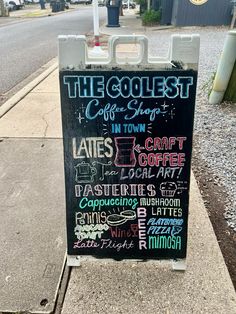 THE COOLEST
Coffee Shop
IN TOWN
LATTES
CRAFT
COFFEE
Tea
LOCAL ART!
PASTERIES
Cappuccinos
MUSHROOM
LATTES
Paninis
AVOCADO
TOAST
Wine
BEER
FLATBREAD
PIZZA &
MIMOSA
Latte Flight